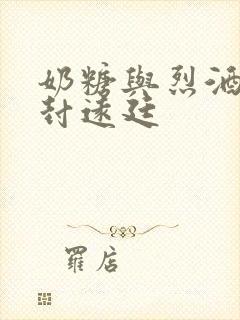 奶糖與烈酒
封遠廷
羅店